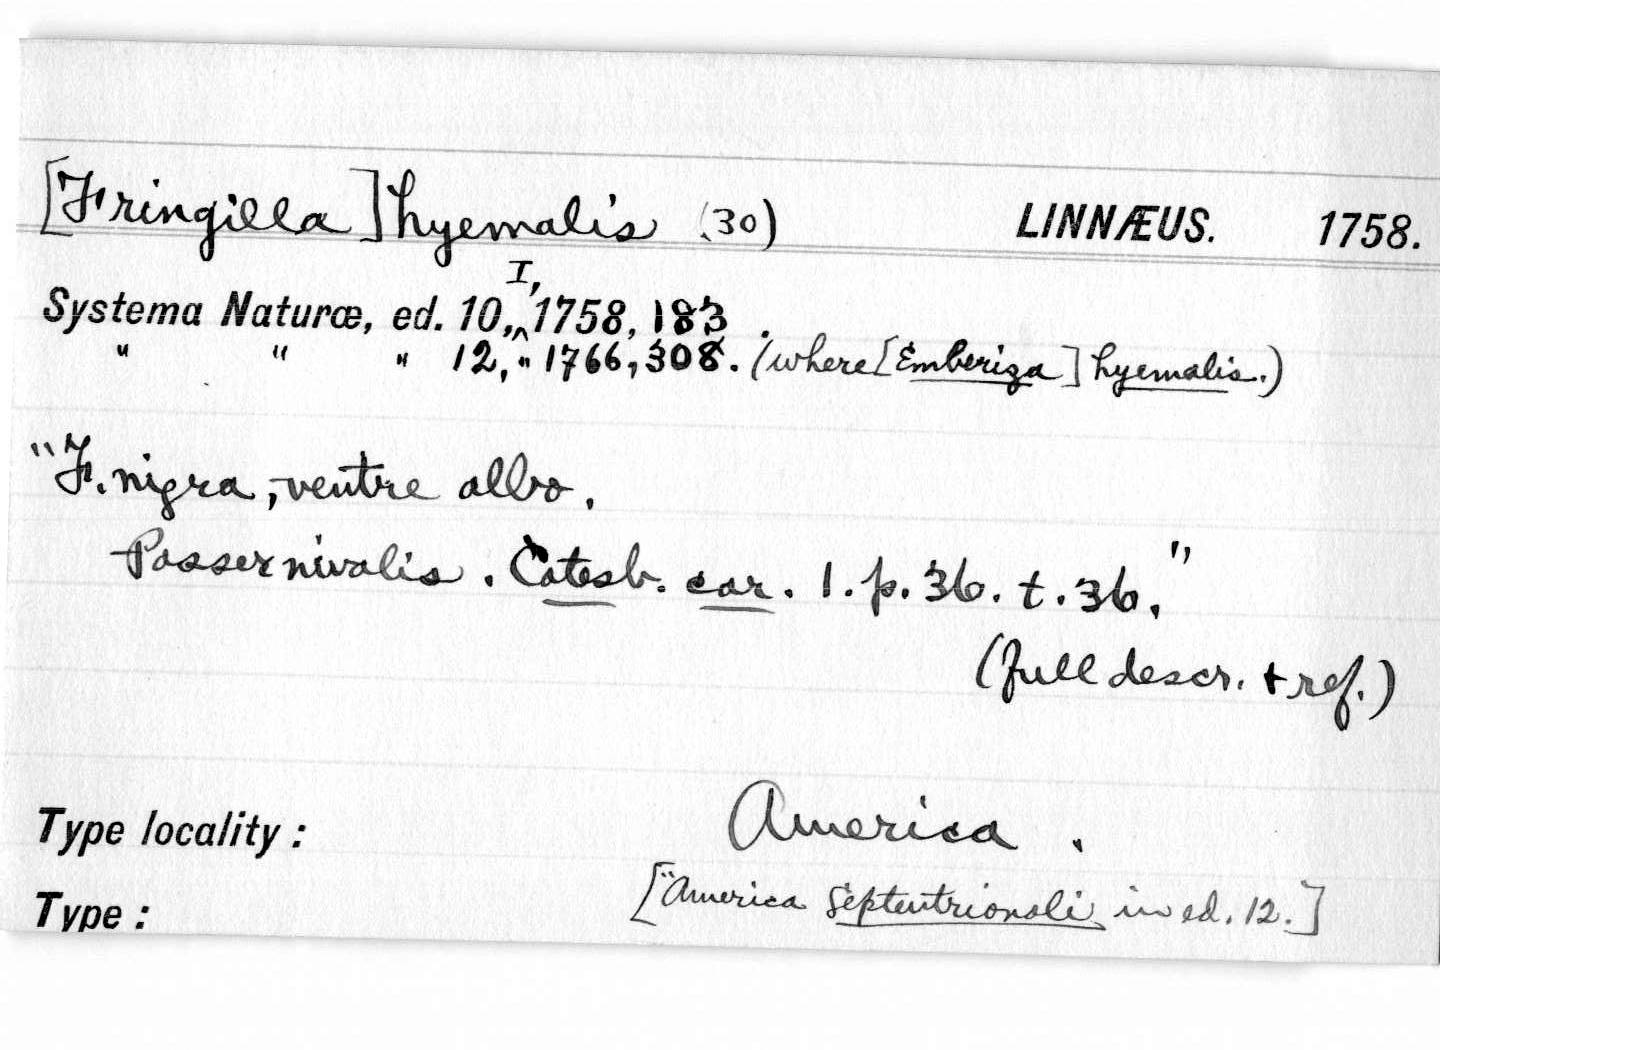 [Fringilla] hyemalis (30) LINNÆUS. 1758.
Systema Naturæ, ed. 10, I, 1758, 183.
" " " 12, " 1766, 308. (where [Emberiza] hyemalis.)
"F. nigra, ventre albo.
Passer nivalis. Catesb. car. 1. p. 36. t. 36."
(full descr. + ref.)
Type locality: America.
["America septentrionali in ed. 12.]
Type: